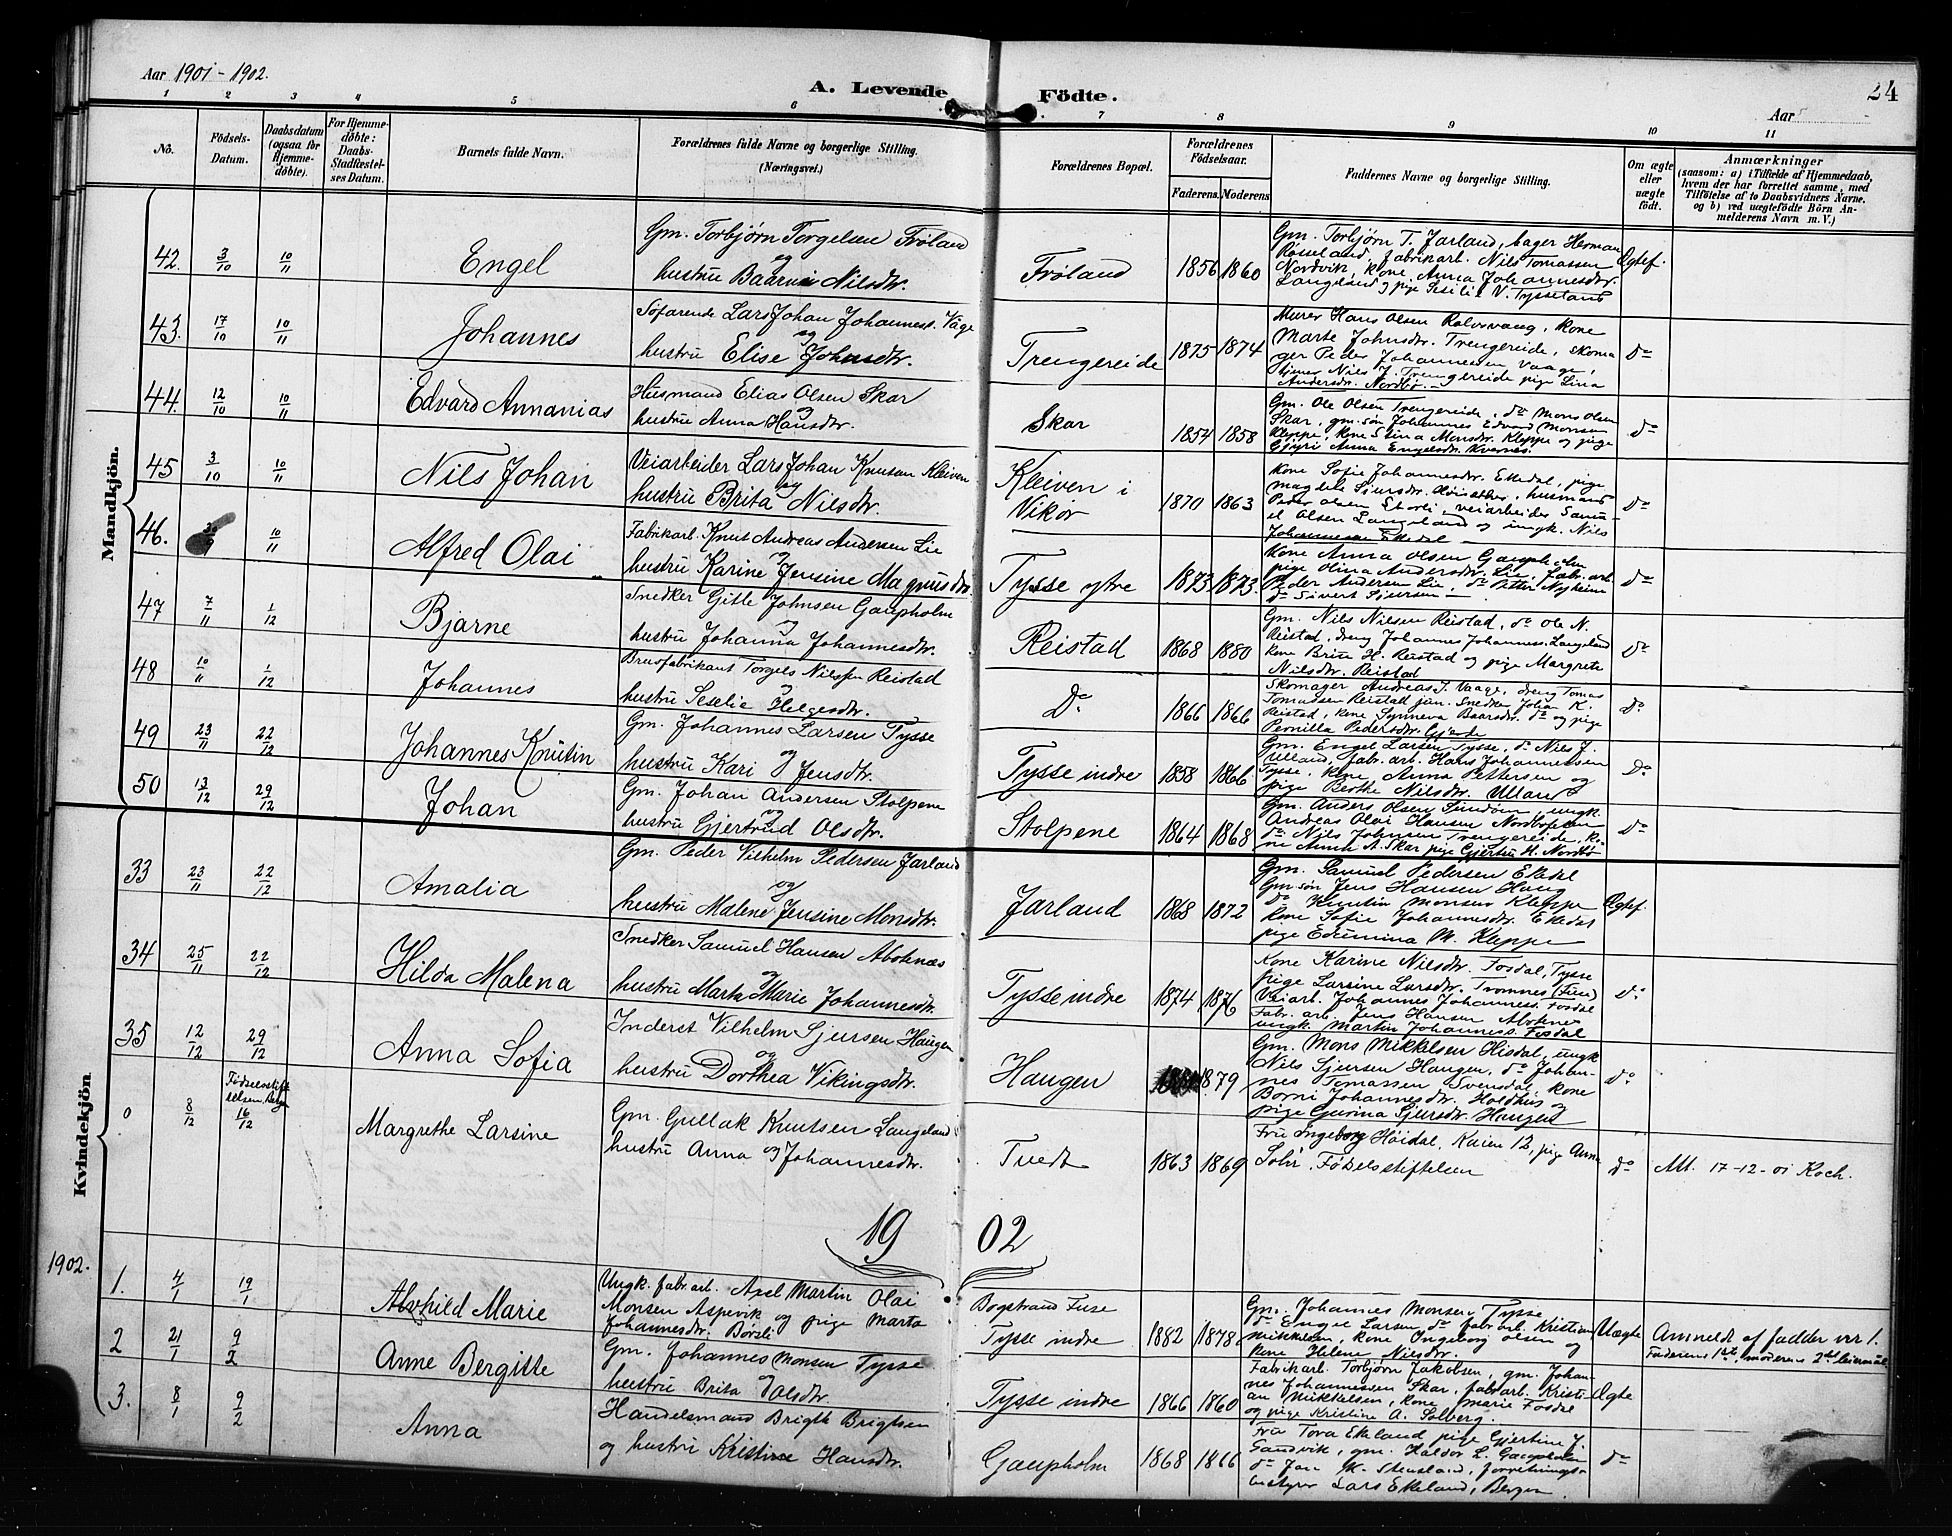 Aar 1901 - 1902.
A. Levende Födte.
24
Aar
1 2 3 4 5 6 7 8 9 10 11
No.
Födsels-Datum.
Daabsdatum (ogsaa for Hjemmedøbte).
For Hjemmedøbte: Daabs-Stadfæstelses Datum.
Barnets fulde Navn.
Forældrenes fulde Navne og borgerlige Stilling. (Næringsvei.)
Forældrenes Bopæl.
Forældrenes Födselsaar.
Faderens. Moderens.
Faddernes Navne og borgerlige Stilling.
Om ægte eller uægte födt.
Anmærkninger
(saasom: a) i Tilfælde af Hjemmedaab, hvem der har forrettet samme, med Tilföielse af to Daabsvidners Navne. og b) ved uægtefödte Börn Anmelderens Navn m. V.)
Mandkjön.
42. 3/10 10/11 Engel
Gm. Torbjørn Torgelsen Frøland
og
hustru Baarni Nilsdtr.
Frøland 1856 1860
Gm. Torbjørn T. Jarland, bager Herman
Røsseland, fabrikarb. Nils Tomassen
Nordvik, kone Anna Johannesdtr.
Langeland og pige Sesilie V. Tysseland
Ægtef.
43. 17/10 10/11 Johannes
Söfarende Lars Johan Johanness. Våge
og
hustru Elise Johnsdtr.
Trengereide 1875 1874
Murer Hans Olsen Rolvsvaag, kone
Marte Johnsdtr. Trengereide, skoma
ger Peder Johannesen Vaage,
tjener Nils J. Trengereide pige Lina
Andersdtr. Nordbø.
Do
44. 12/10 10/11 Edvard Annanias
Husmand Elias Olsen Skar
og
hustru Anna Hansdtr.
Skar 1854 1858
Gm. Ole Olsen Trengereide, do Mons Olsen
Skar, gm. søn Johannes Edvard Monsen
Kleppe, kone Stina Monsdtr. Kleppe og pige
Gjyri Anna Engelsdtr. Kvernes.
Do
45 3/10 10/11 Nils Johan
Veiarbeider Lars Johan Knutsen Kleiven
og
hustru Brita Nilsdtr.
Kleiven i
Vikør 1870 1863
Kone Sofie Johannesdr. Ekedal, pige
Magdele Sjursdtr. husmand
Peder Olsen veiarbeider Samu-
el Olsen Langeland og ungk. Nils
Johannesen Ekedal
Do
46. 10/11 Alfred Olai
Fabrikarb. Knut Andreas Andersen Lie
og
hustru Karine Jensine Magnusdtr.
Tysse ytre 1873 1873.
Kone Anna Olsen Gaupholm
pige Olina Andersdtr. Lie, fab. arb.
Peder Andersen Lie, do Petter Nyheim
do Sivert Sjursen
Do
47 7/11 1/12 Bjarne
Snedker Gitle Johnsen Gaupholm
og
hustru Johanna Johannesdtr.
Reistad 1868 1880
Gm. Nils Nilsen Reistad, do Ole N.
Reistad, dreng Johannes Johanness. Langeland
kone Brite H. Reistad og pige Margrete
Nilsdtr. Reistad
Do
48 10/11 1/12 Johannes
Brusfabrikant Torgels Nilssen Reistad
og
hustru Seselie Helgesdtr.
Do 1866 1866
Skomager Andreas J. Vaage, dreng Tomas
Tomassen Reistad jun. Snedker Johan K.
Reistad, kone Synneva Baarsdtr. do og pige
Pernilla Pedersdtr. Gjerde
Do
49 23/11 22/12 Johannes Knutin
Gm. Johannes Larsen Tysse
og
hustru Kari Jensdtr.
Tysse indre 1858 1866
Gm. Engel Larsen Tysse, do Nils J.
Ulland, fab. arb. Hans Johannessen
Tysse, kone Anna Pettersen og
pige Berthe Nilsdtr. Ulland
Do
50 13/12 29/12 Johan
Gm. Johan Andersen Stolpene
og
hustru Gjertrud Olsdtr.
Stolpene 1864 1868
Gm. Anders Olsen ungk.
Andreas Olai Hansen
do Nils Johnsen Trengereide, ko-
ne Anna A. Skar pige Gjertru H. Nordbø
Do
Kvindekjön
33 23/11 22/12 Amalia
Gm. Peder Vilhelm Pedersen Jarland
og
hustru Malene Jensine Monsdtr.
Jarland 1868 1872
Gm. Samuel Pedersen Ekedal
Gm. søn Jens Hansen Haug
do Knutin Monsen Kleppe
kone Sofie Johannesdtr. Ekedal
pige M. Kleppe
Ægtef.
34 25/11 22/12 Hilda Malena
Snedker Samuel Hansen Aboknæs
og
hustru Marta Marie Johannesdtr.
Tysse indre 1874 1876
Kone Karine Nilsdtr. Fosdal, Tysse
pige Larsine Larsdtr. Tromnes (Fuse)
Veiarb. Johannes Johanness. Fosdal
Fabr. arb. Jens Hansen Aboknes
ungk. Martin Johanness. Fosdal
Do
35 12/12 29/12 Anna Sofia
Inderst Vilhelm Sjursen Haugen
og
hustru Dorthea Vikingsdtr.
Haugen 1879
Gm. Mons Mikkelsen Hisdal, ungk
Nils Sjursen Haugen, do Johan-
nes Tomassen Svensdal, kone
Borni Johannesdtr. Holdhus og
pige Gurina Sjursdtr. Haugen
Do
0 8/12 Födselsstift-
elsen Bergen
16/12 Margrethe Larsine
Gm. Gullak Knutsen Langeland
hustru Anna og Johannesdtr.
Tvedt 1863 1869
Fru Ingeborg Höidal, Kaien 12, pige Anna
Sohr. Födselsstiftelsen
Do
Att. 17-12-01 Koch.
1902
1902.
1. 4/1 19/1 Alvhild Marie
Ungk. fabr. arb. Axel Martin Olai
Monsen Aspevik og pige Marta
Johannesdtr. Børsli
Bogstrand Fuse
Tysse indre 1882 1878
Gm. Johannes Monsen Tysse
do Engel Larsen do fabr. arb. Kristian
Mikkelsen, kone Ingeborg Olsen og
kone Helene Nilsdtr.
Uægte
Anmeldt af fadder nr 1.
Faderens 1ste, moderens 2det leiermål
2 21/1 9/2 Anne Bergitte
Gm. Johannes Monsen Tysse
hustru Brita Olsdtr.
Tysse indre 1866 1860
Fabrikarb. Torbjørn Jakobsen, gm. Johan-
nes Johannessen Skar, fabr. arb. Kristi-
an Mikkelsen, kone Marie Fosdal
og pige Kristine A. Solberg.
Ægte
3. 8/1 9/2 Anna
Handelsmand Brigt Brigtsen
og hustru Kristine Hansdtr.
Gaupholm 1868 1866
Fru Tora Ekeland pige Gjertine J.
Sandvik, gm. Haldor L. Gaupholm
do Jan K. Stensland, forretnings-
bestyrer Lars Ekeland, Bergen.
Do